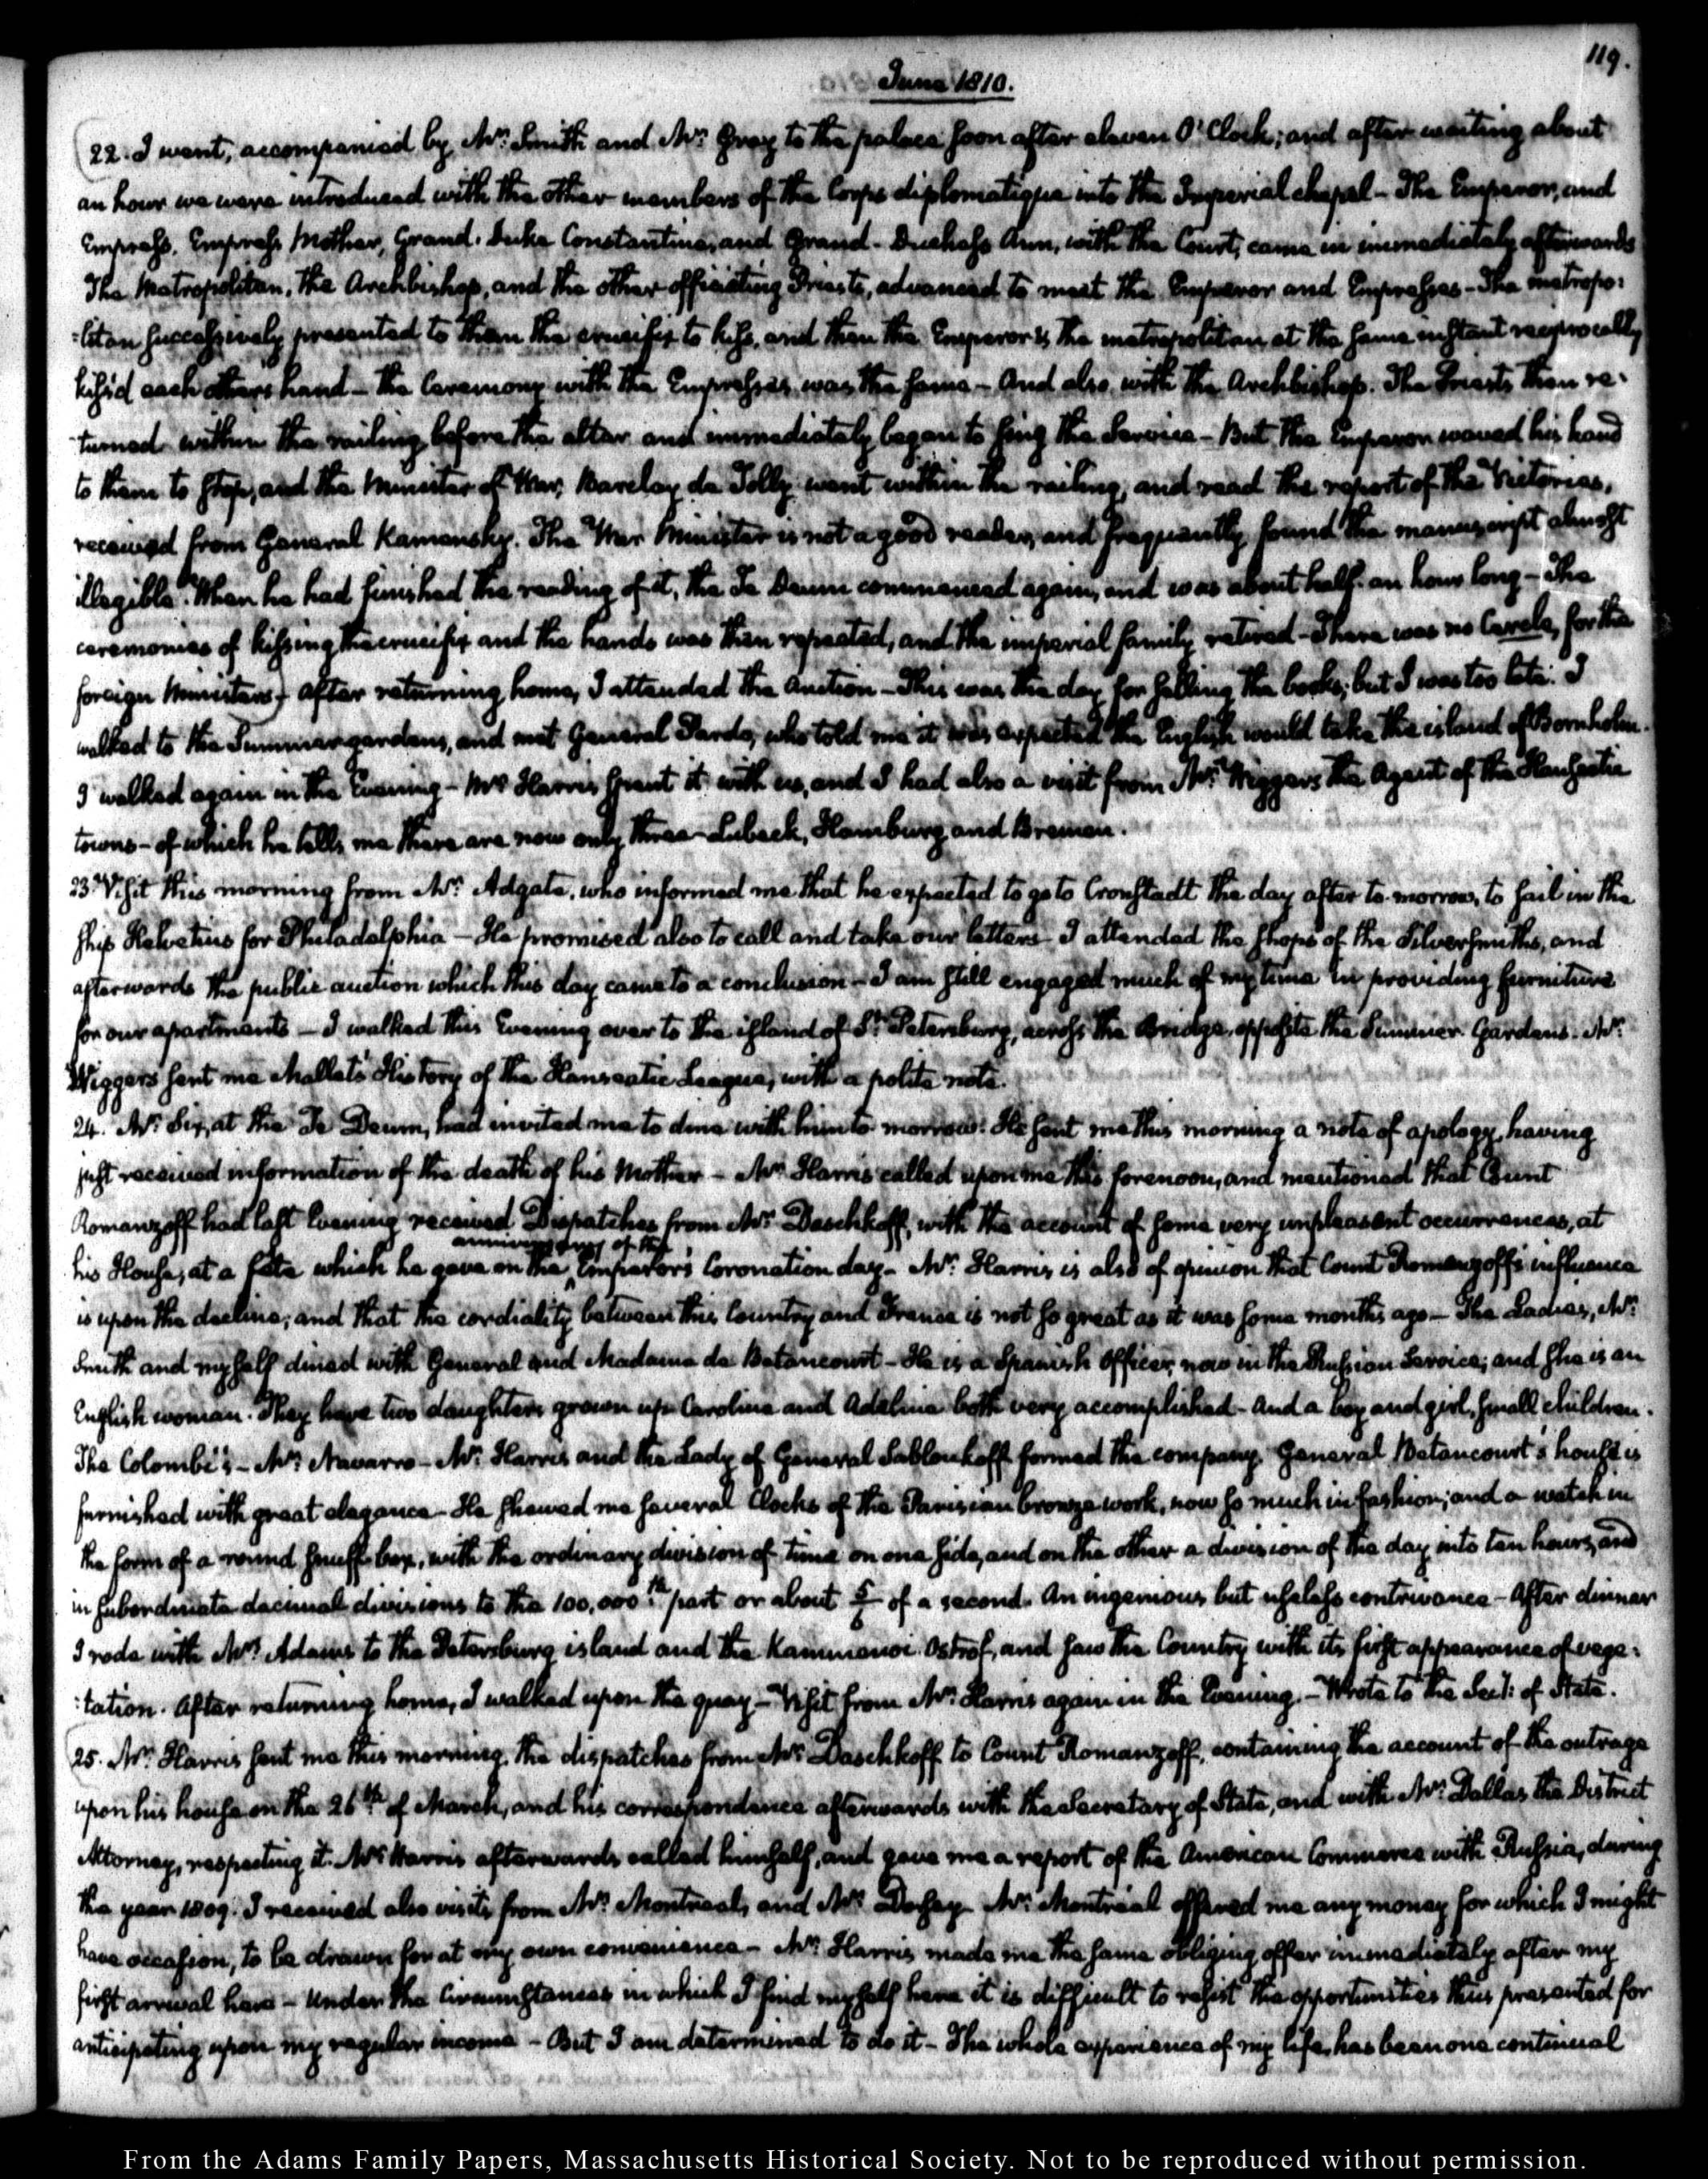 119.
June 1810.
22. I went, accompanied by Mr. Smith and Mr. Gray to the palace soon after eleven O'Clock; and after waiting about
an hour we were introduced with the other members of the Corps diplomatique into the Imperial chapel — The Emperor, and
Empress, Empress Mother, Grand-Duke Constantine, and Grand-Duchess Ann, with the Court, came in immediately afterwards
The Metropolitan, the Archbishop, and the other officiating Priests, advanced to meet the Emperor and Empresses — The metropo:
:litan successively presented to them the crucifix to kiss, and then the Emperor & the metropolitan at the same instant reciprocally
kiss'd each others hand — the Ceremony with the Empresses was the same — And also with the Archbishop. The Priests then re:
:turned within the railing before the altar and immediately began to sing the Service — But the Emperor waved his hand
to them to stop, and the Minister of War, Barclay de Tolly went within the railing, and read the report of the Victories,
received from General Kamensky. The War Minister is not a good reader, and frequently found the manuscript almost
illegible. When he had finished the reading of it, the Te Deum commenced again, and was about half an hour long — The
ceremonies of kissing the crucifix and the hands was then repeated, and the imperial family retired — There was no Cercle, for the
foreign Ministers) After returning home, I attended the Auction — This was the day for selling the books; but I was too late. I
walked to the Summer gardens, and met General Pardo, who told me it was expected the English would take the island of Bornholm.
I walked again in the Evening — Mr. Harris spent it with us, and I had also a visit from Mr. Wiggers the Agent of the Hanseatic
towns — of which he tells me there are now only three — Lubeck, Hamburg and Bremen.
23. Visit this morning from Mr. Adgate, who informed me that he expected to go to Cronstadt the day after to-morrow, to sail in the
ship Helvetius for Philadelphia — He promised also to call and take our letters — I attended the shops of the Silversmiths, and
afterwards the public auction which this day came to a conclusion — I am still engaged much of my time in providing furniture
for our apartments — I walked this Evening over to the island of St. Petersburg, across the Bridge, opposite the Summer Gardens. Mr.
Wiggers sent me Mallet's History of the Hanseatic League, with a polite note.
24. Mr. Six, at the Te Deum, had invited me to dine with him to-morrow. He sent me this morning a note of apology, having
just received information of the death of his Mother — Mr. Harris called upon me this forenoon, and mentioned that Count
Romanzoff had last Evening received Dispatches from Mr. Daschkoff, with the account of some very unpleasant occurrences, at
his House, at a fête which he gave on the anniversary of the Emperor's Coronation day — Mr. Harris is also of opinion that Count Romanzoff's influence
is upon the decline; and that the cordiality between this Country and France is not so great as it was some months ago — The Ladies, Mr.
Smith and myself dined with General and Madame de Betancourt — He is a Spanish Officer, now in the Russian Service; and she is an
English woman. They have two daughters grown up Caroline and Adeline both very accomplished — And a boy and girl, small children.
The Colombi's — Mr. Navarro — Mr. Harris and the Lady of General Sabloukoff formed the company. General Betancourt's house is
furnished with great elegance — He shewed me several Clocks of the Parisian bronze work, now so much in fashion; and a watch in
the form of a round snuff-box, with the ordinary division of time on one side, and on the other a division of the day into ten hours, and
in subordinate decimal divisions to the 100,000th. part or about 5/6 of a second. An ingenious but useless contrivance — After dinner
I rode with Mrs. Adams to the Petersburg island and the Kammenoi Ostrof, and saw the Country with its first appearance of vege:
:tation. After returning home, I walked upon the quay — Visit from Mr. Harris again in the Evening. — Wrote to the Sec't: of State.
25. Mr. Harris sent me this morning, the dispatches from Mr. Daschkoff to Count Romanzoff, containing the account of the outrage
upon his house on the 26th. of March, and his correspondence afterwards with the Secretary of State, and with Mr. Dallas the District
Attorney, respecting it. Mr. Harris afterwards called himself, and gave me a report of the American Commerce with Russia, during
the year 1809. I received also visits from Mr. Montreal, and Mr. Mr. Montréal offered me any money for which I might
have occasion, to be drawn for at my own convenience — Mr. Harris made me the same obliging offer immediately after my
first arrival here — Under the Circumstances in which I find myself here it is difficult to resist the opportunities thus presented for
anticipating upon my regular income — But I am determined to do it — The whole experience of my life has been one continual
From the Adams Family Papers, Massachusetts Historical Society. Not to be reproduced without permission.